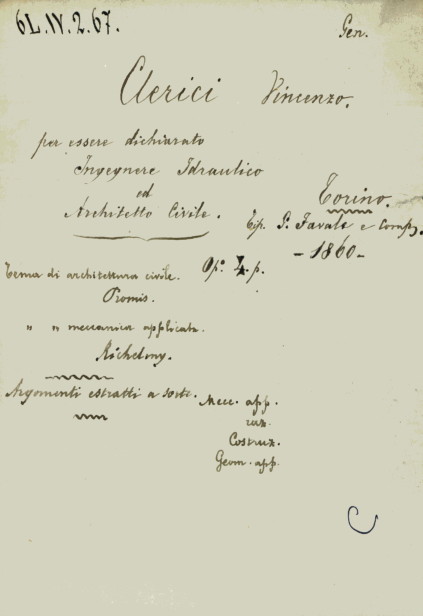 6L.IV.2.67.
Gen.
Clerici Vincenzo.
per essere dichiarato
Ingegnere Idraulico
ed
Architetto Civile.
Torino.
Tip. G. Favale e Comp.
- 1860 -
Op° 4. p.
Tema di architettura civile.
Promis.
" " meccanica applicata.
Richelmy.
Argomenti estratti a sorte.
Mecc. app.
Costruz.
Geom. app.
C